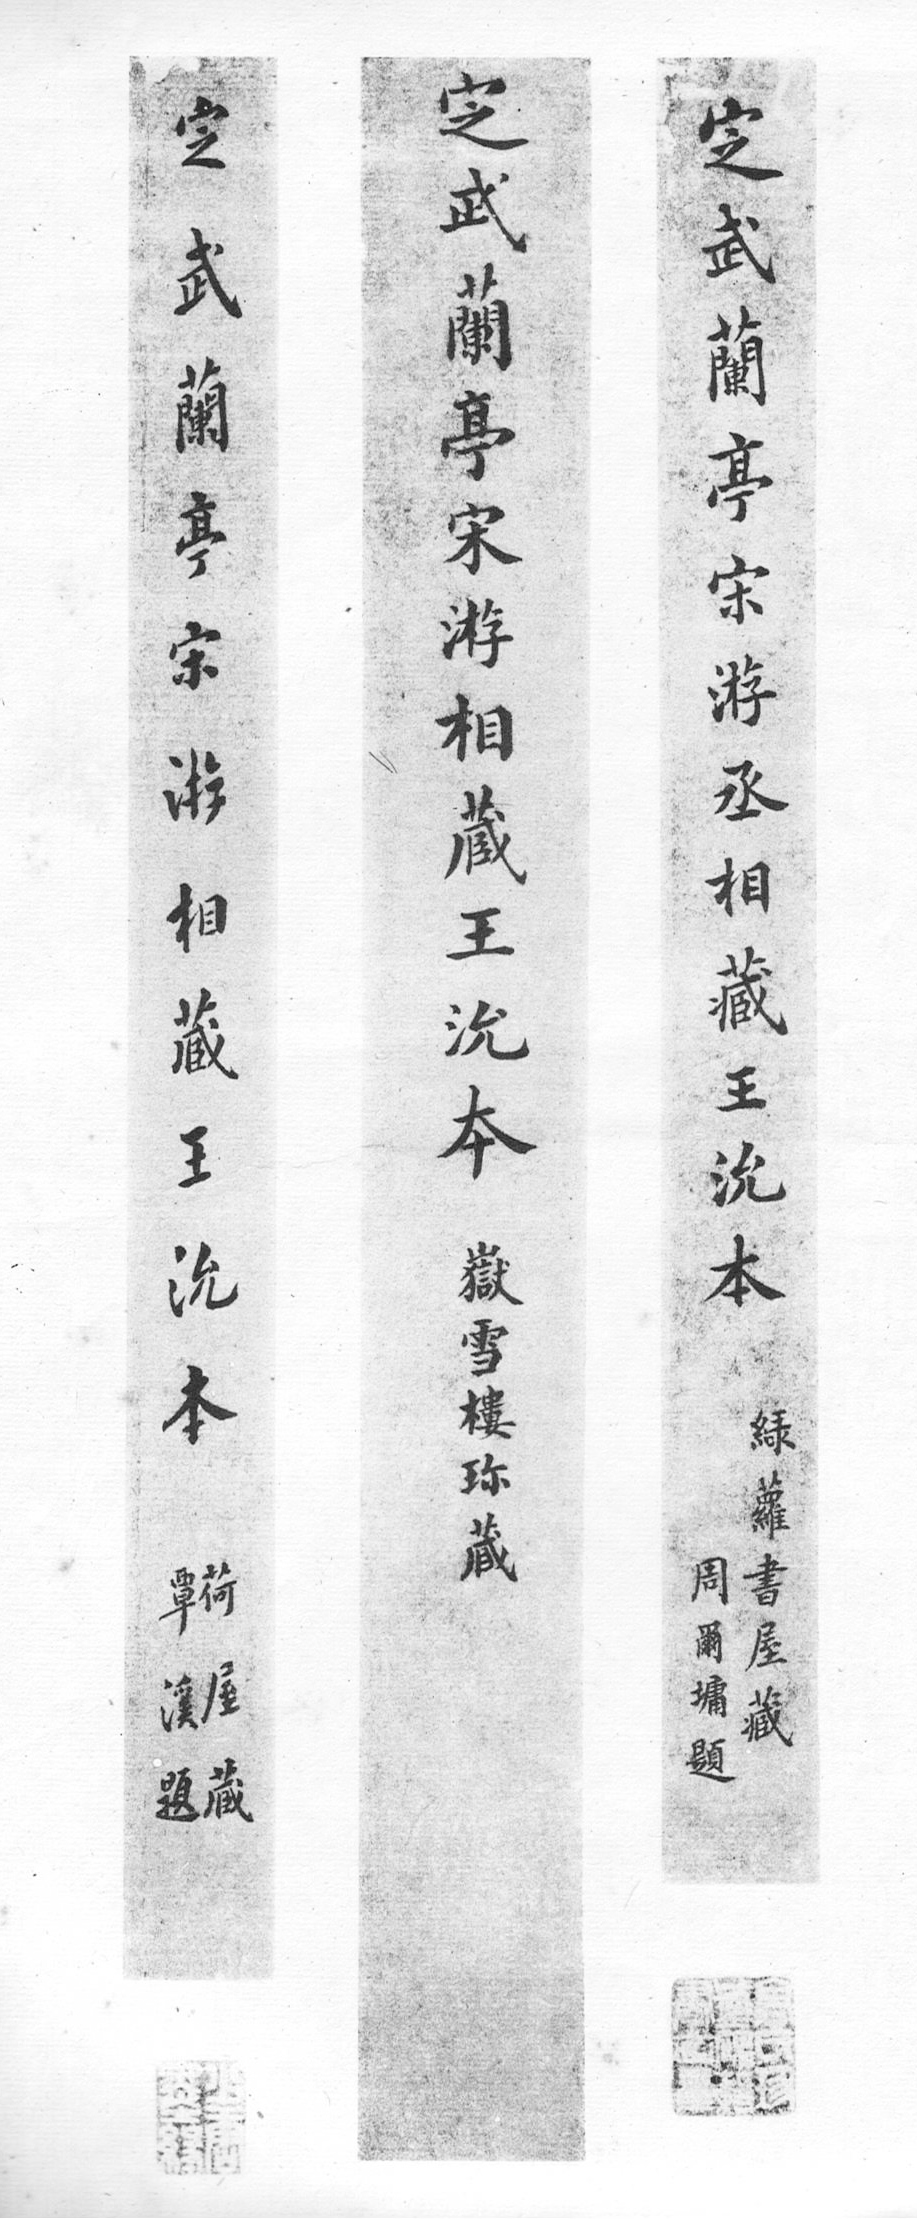 定武蘭亭宋游丞相藏王沇本
綠蘿書屋藏
周爾墉題
定武蘭亭宋游相藏王沇本
嶽雪樓珎藏
定武蘭亭宋游相藏王沇本
荷屋藏
覃溪題